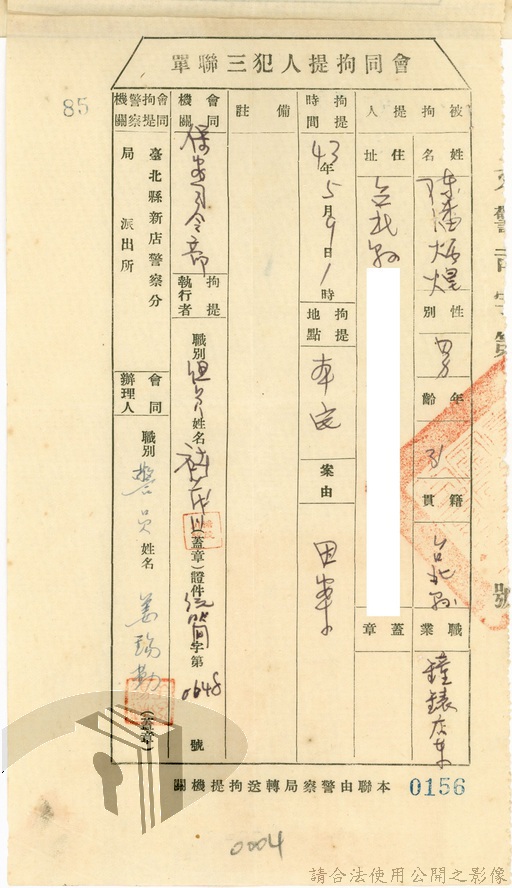 會同拘提人犯三聯單
85
被拘提人
姓名
陳潘炳煌
性別
男
年齡
31
籍貫
台北縣
職業
鐘錶店東
住址
台北縣
蓋章
拘提時間
43年5月9日1時
拘提地點
本宅
案由
因案
備註
會同機關
保安司令部
拘提執行者
職別
組員
姓名
(蓋章)證件
字第
0648
號
會同拘提警察機關
臺北縣新店警察分局
派出所
會同辦理人
職別
警員
姓名
姜瑞勤
(蓋章)
本聯由警察局轉送拘提機關
0156
號
0004
請合法使用公開之影像